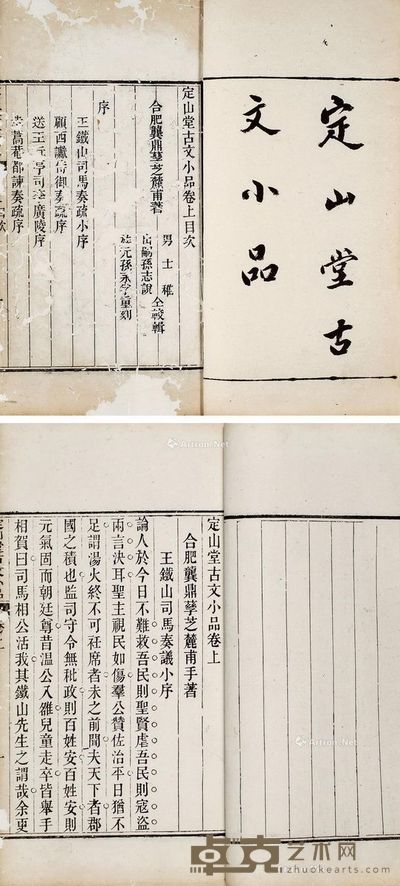 定山堂古
文小品
定山堂古文小品卷上目次
合肥龔鼎孳芝麓甫著
男士稚
嗣孫志說 仝較輯
元孫永孚重刻
序
王鐵山司馬奏疏小序
顧西巘侍御奏疏序
廣陵序
都諫奏疏序
定山堂古文小品卷上
合肥龔鼎孳芝麓甫手著
王鐵山司馬奏議小序
論人於今日不難救吾民則聖賢虐吾民則寇盜
兩言決耳聖主視民如傷羣公贊佐治平日猶不
足謂湯火終不可袵席者未之前聞夫天下者郡
國之積也監司守令無秕政則百姓安百姓安則
元氣固而朝廷尊昔温公入雒兒童走卒皆舉手
相賀曰司馬相公活我其鐵山先生之謂哉余更
Artron.Net
Artron.Net
卓克艺术网
zhuokearts.com